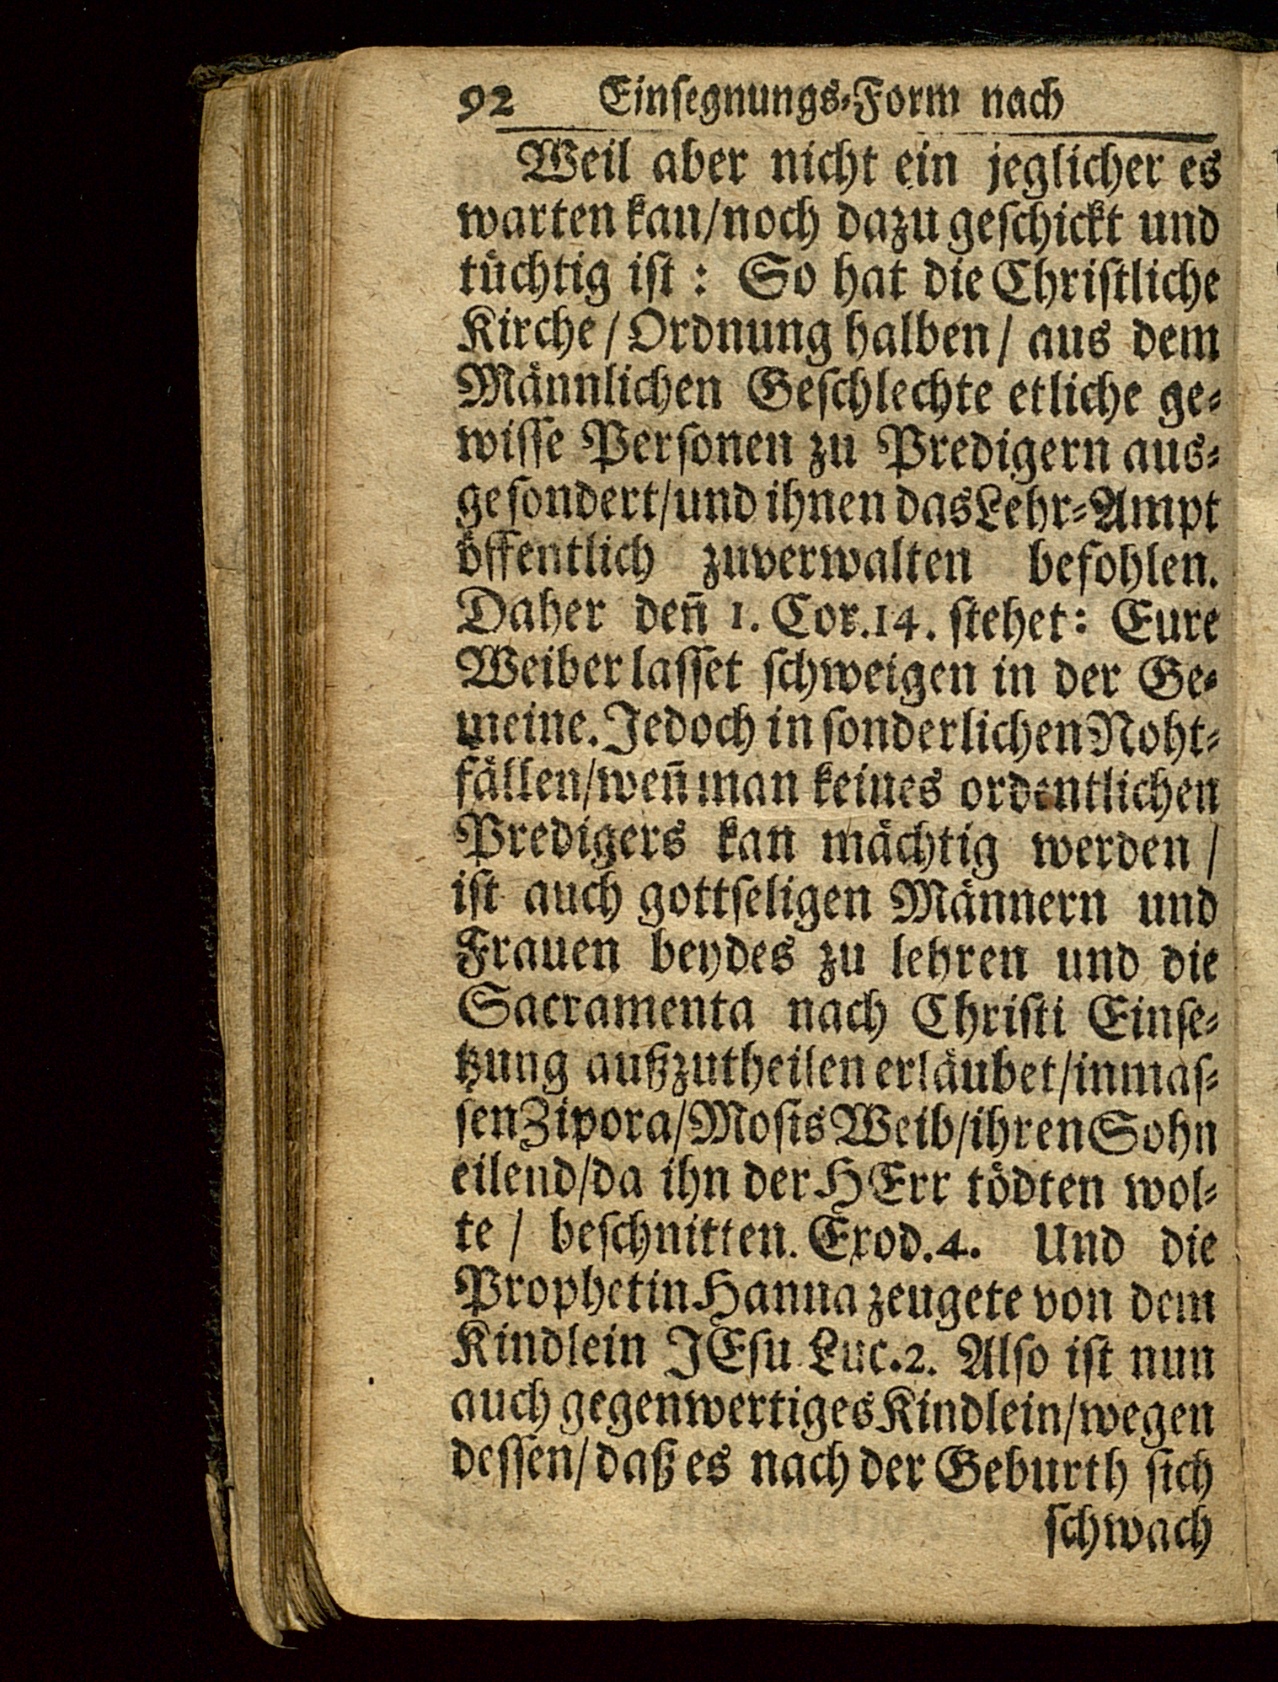 92 Einſegnungs⸗Form nach
Weil aber nicht ein jeglicher es
warten kan/noch dazu geſchickt und
tüchtig iſt: So hat die Chriſtliche
Kirche/Ordnung halben/ aus dem
Männlichen Geſchlechte etliche ge⸗
wiſſe Perſonen zu Predigern aus⸗
geſondert/und ihnen das Lehr⸗Ampt
öffentlich zuverwalten befohlen.
Daher deñ 1. Cor.14. ſtehet: Eure
Weiber laſſet ſchweigen in der Ge⸗
meine. Jedoch in ſonderlichen Noht⸗
fällen/weñ man keines ordentlichen
Predigers kan mächtig werden/
iſt auch gottſeligen Männern und
Frauen beydes zu lehren und die
Sacramenta nach Chriſti Einſe⸗
tzung außzutheilen erläubet/inmaſ⸗
ſen Zipora/Moſis Weib/ihren Sohn
eilend/da ihn der HErr tödten wol⸗
te/ beſchnitten. Exod.4. Und die
Prophetin Hanna zeugete von dem
Kindlein JEſu Luc.2. Alſo iſt nun
auch gegenwertiges Kindlein/wegen
deſſen/daß es nach der Geburth ſich
ſchwach